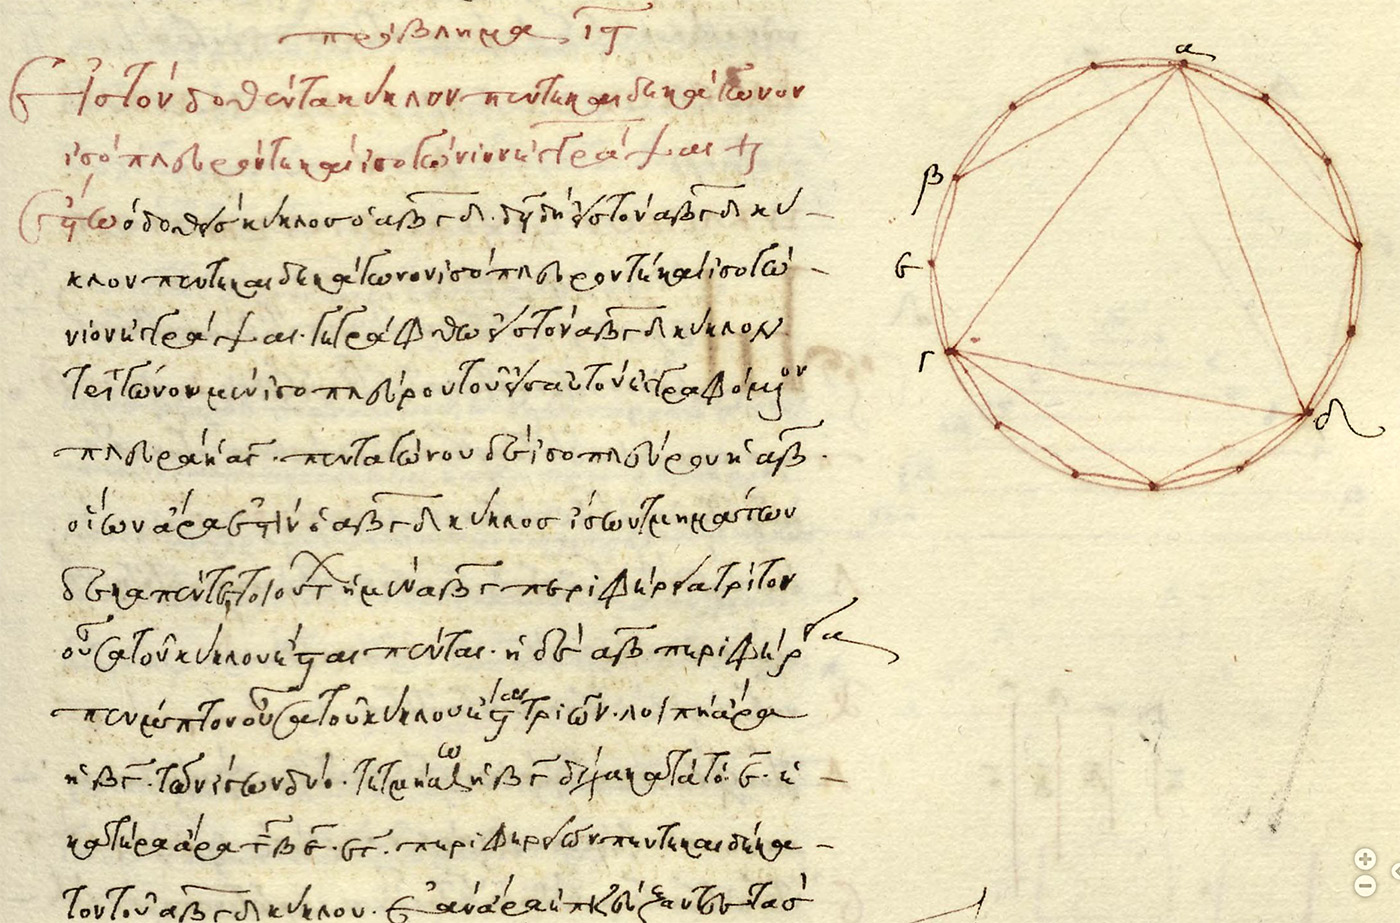 πρόβλημα ις
Εἰς τὸν δοθέντα κύκλον πεντεκαιδεκάγωνον
ἰσόπλευρόν τε καὶ ἰσογώνιον ἐγγράψαι
Ἔστω ὁ δοθεὶς κύκλος ὁ αβγδ· δεῖ δὴ εἰς τὸν αβγδ κύ-
κλον πεντεκαιδεκάγωνον ἰσόπλευρόν τε καὶ ἰσογώ-
νιον ἐγγράψαι. γεγράφθω εἰς τὸν αβγδ κύκλον
τριγώνου μὲν ἰσοπλεύρου τοῦ εἰς αὐτὸν ἐγγραφομένου
πλευρὰ ἡ αγ. πενταγώνου δὲ ἰσοπλεύρου ἡ αβ.
οἵων ἄρα ἐστὶν ὁ αβγδ κύκλος ἴσων τμημάτων
δεκαπέντε, τοιούτων ἡ μὲν αβγ περιφέρεια τρίτον
οὖσα τοῦ κύκλου ἔσται πέντε· ἡ δὲ αβ περιφέρεια
πέμπτον οὖσα τοῦ κύκλου ἔσται τριῶν. λοιπὴ ἄρα
ἡ βγ. τῶν ἴσων δύο. τετμήσθω ἡ βγ δίχα κατὰ τὸ ε. ἑ-
κατέρα ἄρα τῶν βε. εγ. περιφερειῶν πεντεκαιδέκα-
τον τοῦ αβγδ κύκλου. ἐὰν ἄρα ἐπιζεύξαντες τὰς
α
β
ε
γ
δ